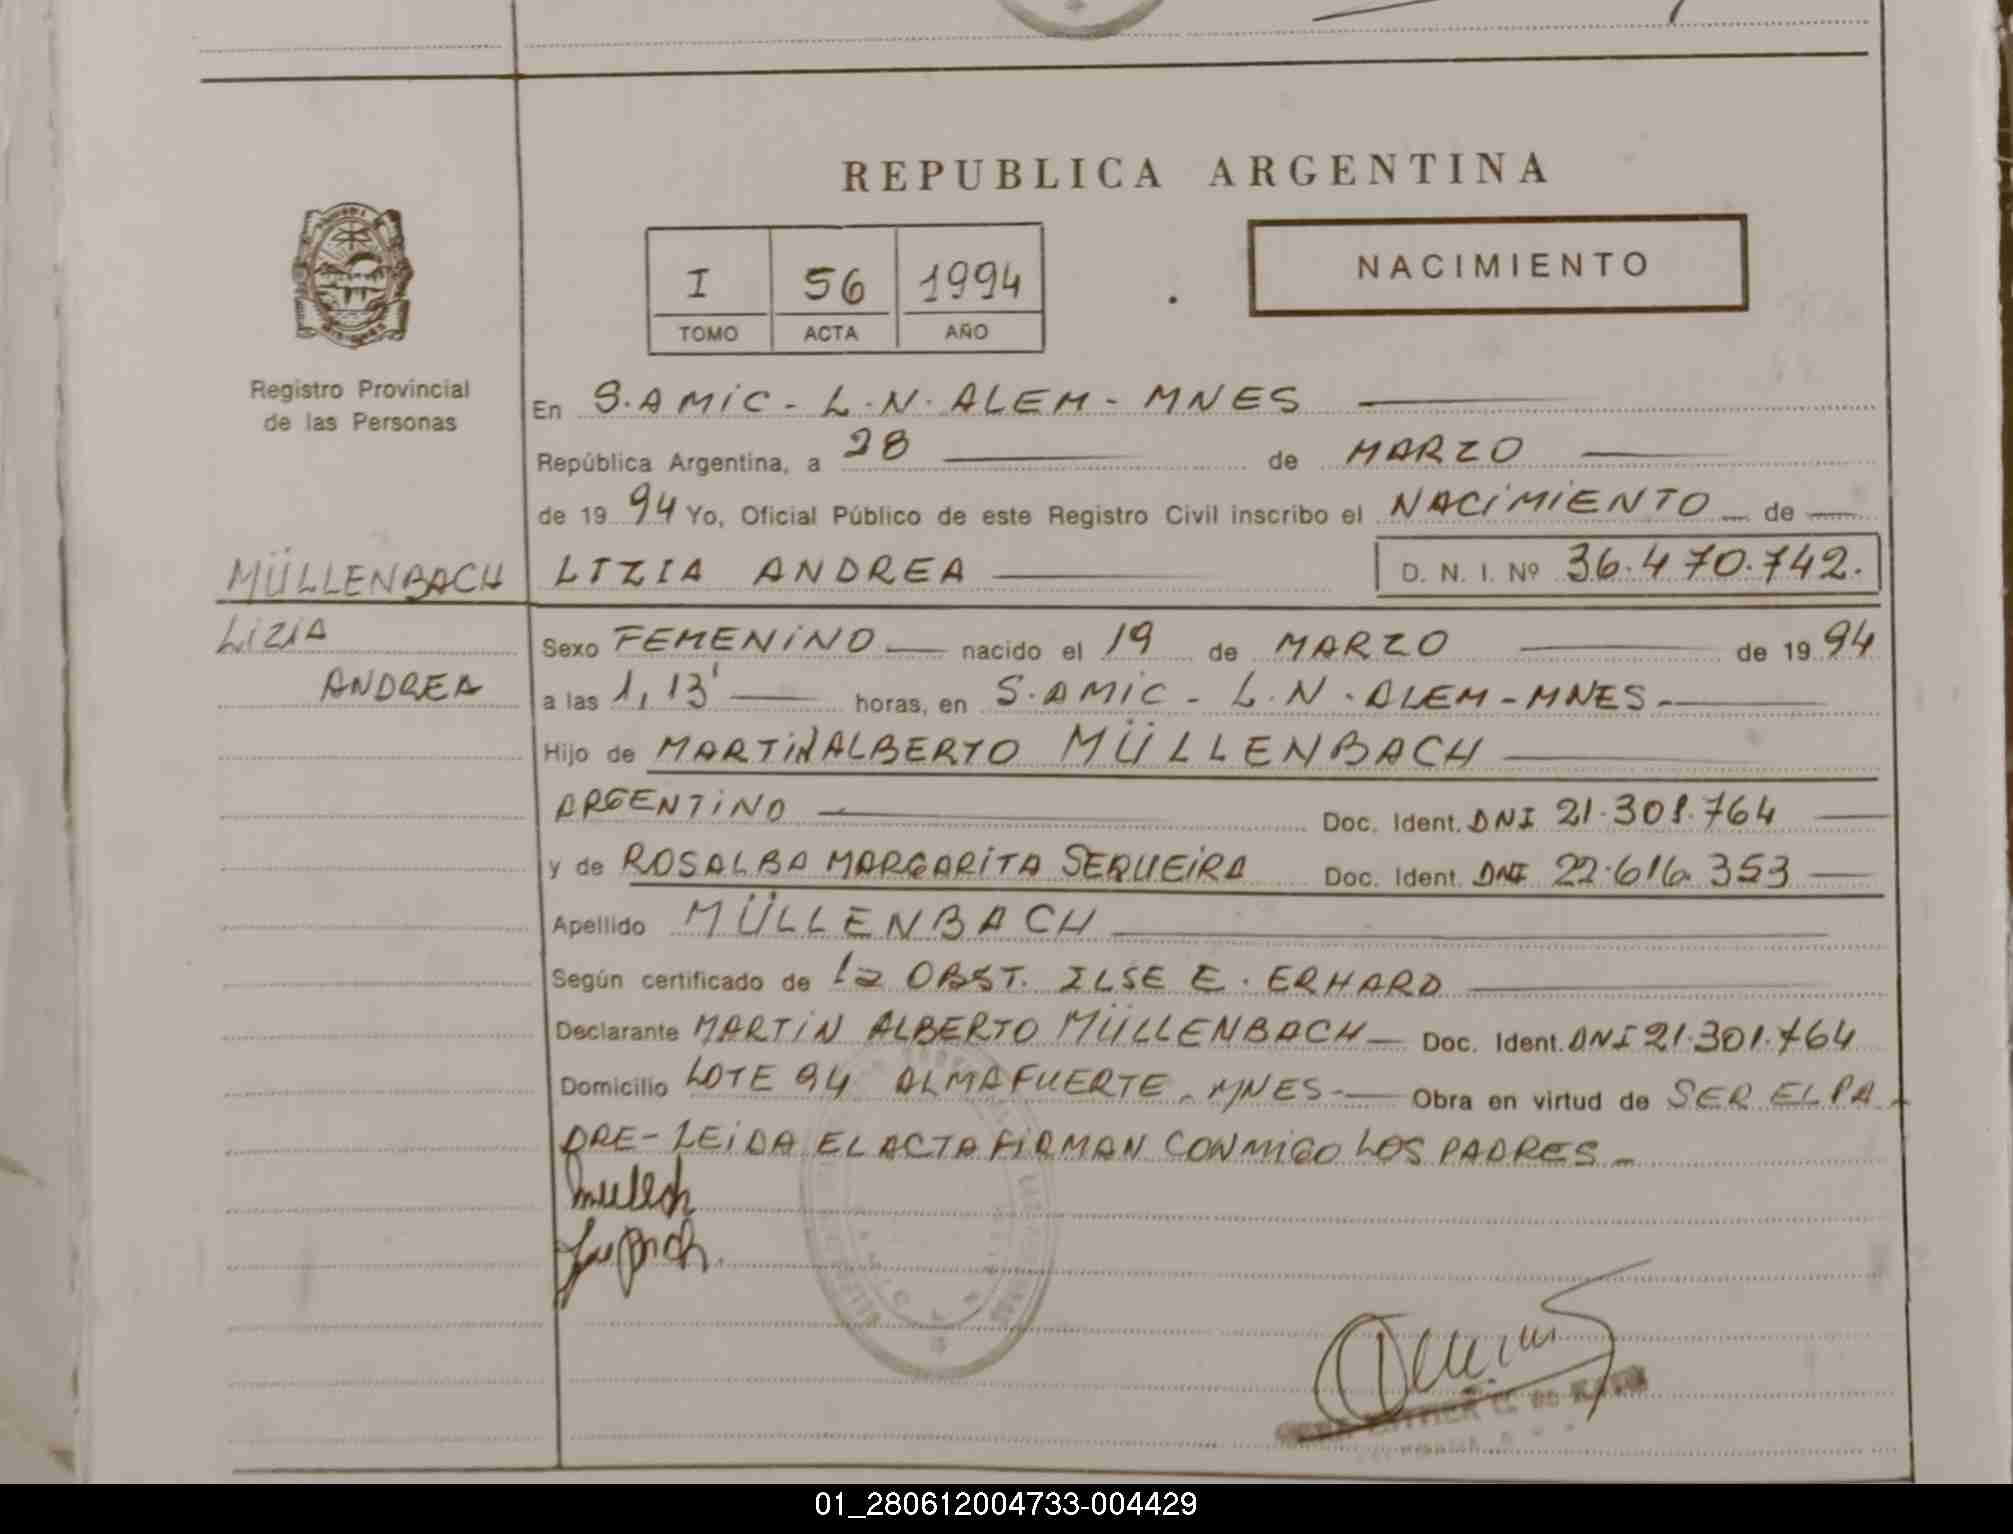 REPUBLICA ARGENTINA
I 56 1994
TOMO ACTA AÑO
NACIMIENTO
Registro Provincial
de las Personas
En S.AMIC - L.N. ALEM - MNES
República Argentina, a 28 de MARZO
de 19 94 Yo, Oficial Público de este Registro Civil inscribo el NACIMIENTO de
MÜLLENBACH
LIZIA
ANDREA
LIZIA ANDREA D. N. I. Nº 36.470.742.
Sexo FEMENINO nacido el 19 de MARZO de 19 94
a las 1,13' horas, en S.AMIC - L.N. ALEM - MNES -
Hijo de MARTIN ALBERTO MÜLLENBACH
ARGENTINO Doc. Ident. DNI 21.301.764
y de ROSALBA MARGARITA SEQUEIRA Doc. Ident. DNI 22.616.353
Apellido MÜLLENBACH
Según certificado de la OBST. ILSE E. ERHARD
Declarante MARTIN ALBERTO MÜLLENBACH Doc. Ident. DNI 21.301.764
Domicilio LOTE 94 ALMAFUERTE - MNES - Obra en virtud de SER EL PA-
DRE - LEIDA EL ACTA FIRMAN CONMIGO LOS PADRES -
01_280612004733-004429